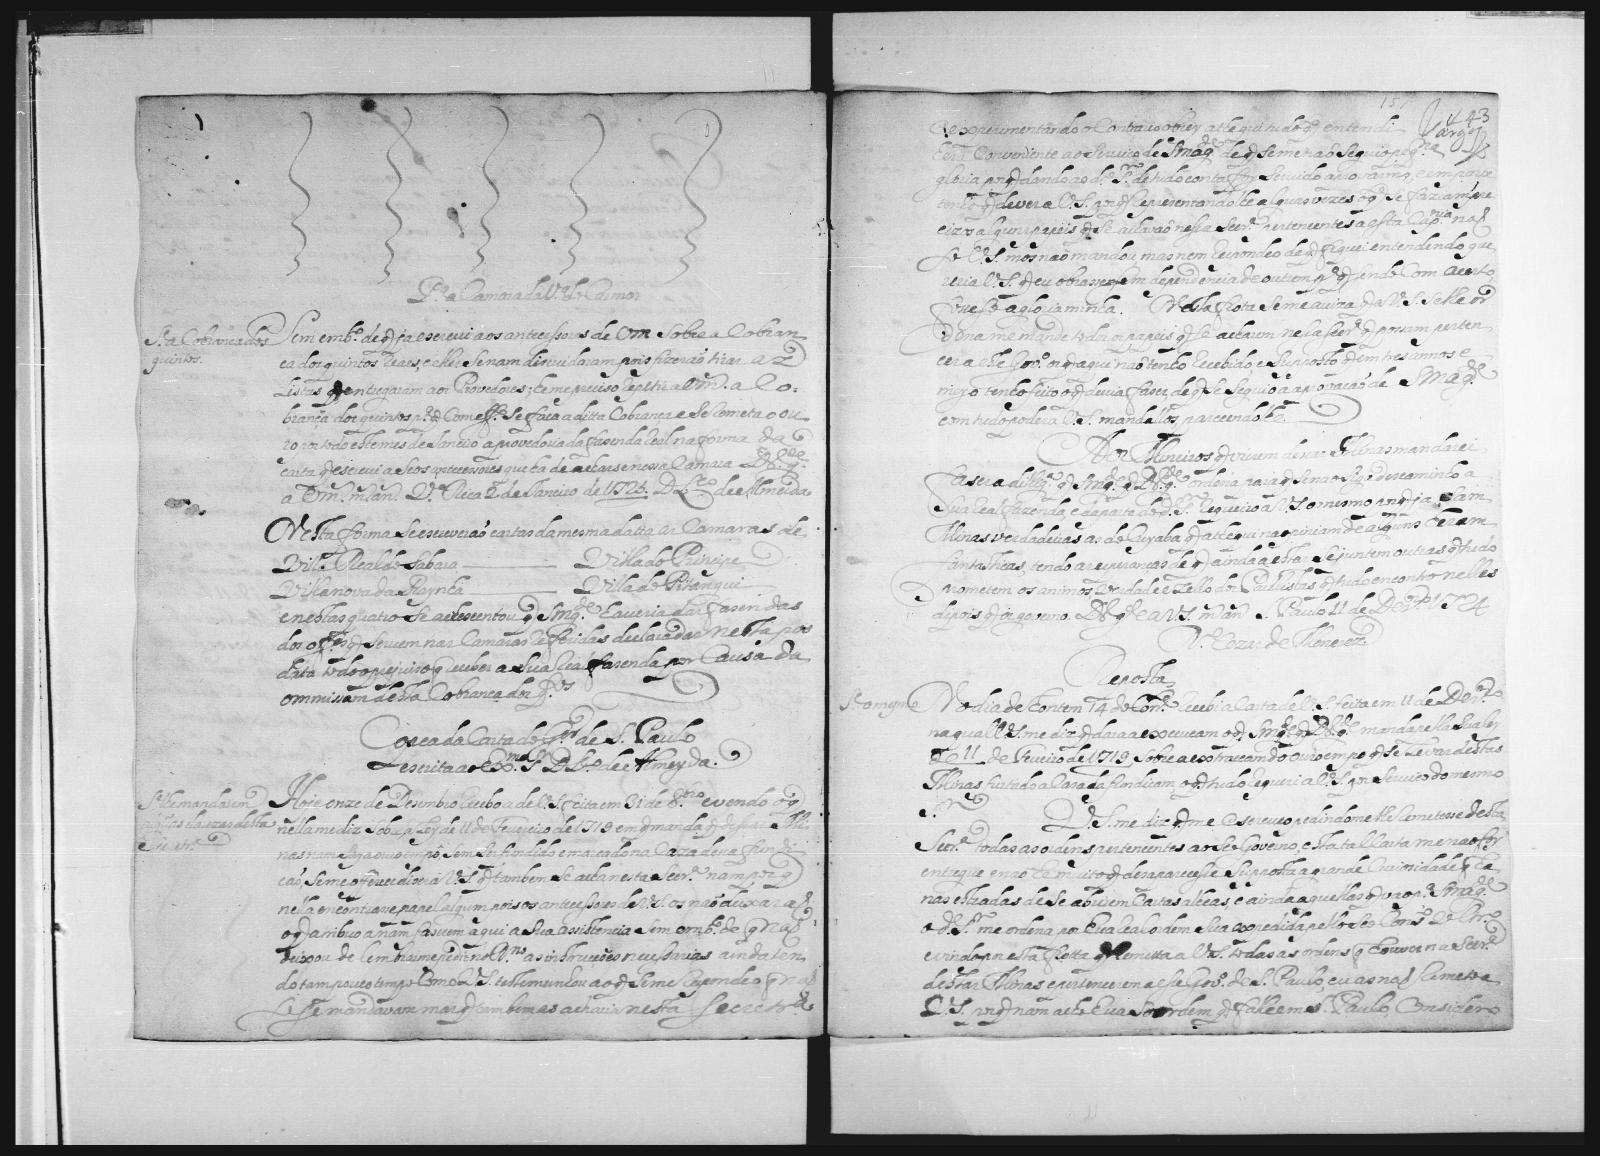 P.ª a Camara da V.ª do Carmo
S.e a Cobranca dos
quintos.
Sem emb.º de q̃ ja escrevi aos antecessores de Vm̃ Sobre a Cobran
ca dos quintos Reaes, e elles Se nam descuidaram pois fizerão tirar as
Listas q̃ entregaram aos Provedores; he me preciso Repetir a Vm̃. a Co-
brança dos quintos p.ª q̃ Com eff.º Se faça a ditta Cobrança e Se Remeta o ou
ro por todo este mes de Janeiro a provedoria da fazenda Real na forma da
carta q̃ escrevi a Seos antecessores que ha de acharse nessa Camara D.s g.de
a Vm̃. m. an. V.ª Rica 2 de Janeiro de 1725. D. L.ço de Almeida
Nesta forma Se escreverão cartas da mesma datta as Camaras de
Villa Real de Sabara Villa do Principe
Villa nova da Raynha Villa de Pitangui
e nestas quatro Se acrescentou q̃ S Mag.de haveria das fasendas
dos off.es q̃ Servem nas Camaras Referidas declaradas nesta pos
data todo o prejuizo q̃ Receber a Sua Real fazenda por Causa da
ommissam desta Cobranca dos q.tos
Copea da Carta do G.or de S. Paulo
escrita ao Ex.mo S.r D. L.ço de Almeyda.
S.e lhe mandarem
desta
Secretr.ª
Hoje onze de Desembro Recebo a de V.S. feita em 31 de 8.bro e vendo o q̃
nella me diz Sobre a Ley de 11 de Fevereiro de 1719 em q̃ manda q̃ destas Mi-
nas nam Saya ouro em pó, Sem Ser fundido e marcado na Caza de fundi
cao, Se me offerece diser a V.S. q̃ tambem Se acha nesta Secr.ª nam por q̃
nella encontrasse papel algum pois os antecessores de V.S. os não deixarao
o q̃ atribuo a nam faserem aqui a Sua assistencia Sem emb.º de q̃ nao
deixou de lembrarme pedir no R.º as instrucções necessarias ainda ten
do tam pouco tempo Como V.S. testemunhou ao q̃ Se me Responde o q̃ nao
Se me mandavam mas q̃ tambem as acharia nesta Secretr.ª
157
43
Vargas
e experimentando o Contrario obrey athe qui tudo q̃ entendi
Era Conveniente ao Serviço de S Mag.de de q̃ Se me não Seguio peq.na
gloria porq̃ dando ao d.º S.r de tudo conta foi Servido aprovarmo, e em parte
tenho q̃ dever a V.S. por q̃ Representandolhe alguas vezes o q̃ Se fazia m.to pre
cizo alguns papeis q̃ Se achavão nessa Secr.ª pertencentes a esta Cap.nia nao
So V.S. mos não mandou mas nem Respondeo de q̃ fiquei entendendo que
reria V.S. q̃ eu obrasse Sem dependencia de outrem p.ª q̃ Sendo Com acerto
fosse So a gloria minha. Nesta frota Se me aviza q̃ a V.S. Selhe or
dena me mande todos os papeis q̃ Se acharem nessa Secr.ª q̃ possam perten
cer a este Gov.º os q̃ athe aqui não tenho Recebido, e Suposto q̃ em tres annos e
meyo tenho feito o q̃ devia fazer de q̃ Se Seguio a aprovação de S Mag.de
com tudo poderá V.S. mandalos parecendolhe
Aos Mineiros q̃ vivem dessas Minas mandarei
faser a dilig.ª q̃ S Mag.de q̃ D.s g.de ordena para q̃ Senao Siga descaminho a
Sua Real fazenda, e da parte do d.º S.r Requeiro a V.S. o mesmo porq̃ ja Sam
Minas verdadeiras as do Cuyaba q̃ athe qui na opiniam de alguns Eram
fantasticas, tendo as esperanças de q̃ ainda a estas Se juntem outras q̃ tudo
prometem os animos verdade e Zello dos Paulistas q̃ tudo encontro nelles
depois q̃ os governo. D.s g.de a V.S. m. an. S. Paulo 11 de Dez.bro 1724
R.º Cezar de Menezes
Reposta
S.e o mesmo
No dia de hontem 14 do Corr.e Recebi a Carta de V.S. feita em 11 de Dez.bro
na qual V.S. me diz q̃ dara a execucam o q̃ S Mag.de q̃ D.s g.de manda pella Sua Ley
de 11 de Fevereiro de 1719 Sobre a extraccam do ouro em po q̃ Se Levar destas
Minas furtado a Casa da fundicam o q̃ tudo Requeri a V.S. por Serviço do mesmo
S.r
V.S. me diz q̃ me escreveo pedindome lhe Remetesse desta
Secr.ª todas as ordens pertencentes ao Seo Governo, e esta tal Carta me nao foy
entregue e nao he muito q̃ desaparecesse Supposta a grande Curiosidade q̃ ha
nas estradas de Se abrirem Cartas alheas, e ainda aquellas q̃ vao p.ª S Mag.de
o d.º S.r me ordena por hua Real ordem Sua expedida pello Seo Cons.º Ultr.º
e vinda por esta frotta q̃ Remetta a V.S. todas as ordens q̃ houver na Secr.ª
destas Minas e pertencerem a esse Gov.º de S. Paulo, eu as nao Remetto a
V.S. porq̃ nam acho hua So ordem q̃ falle em S. Paulo, Considero